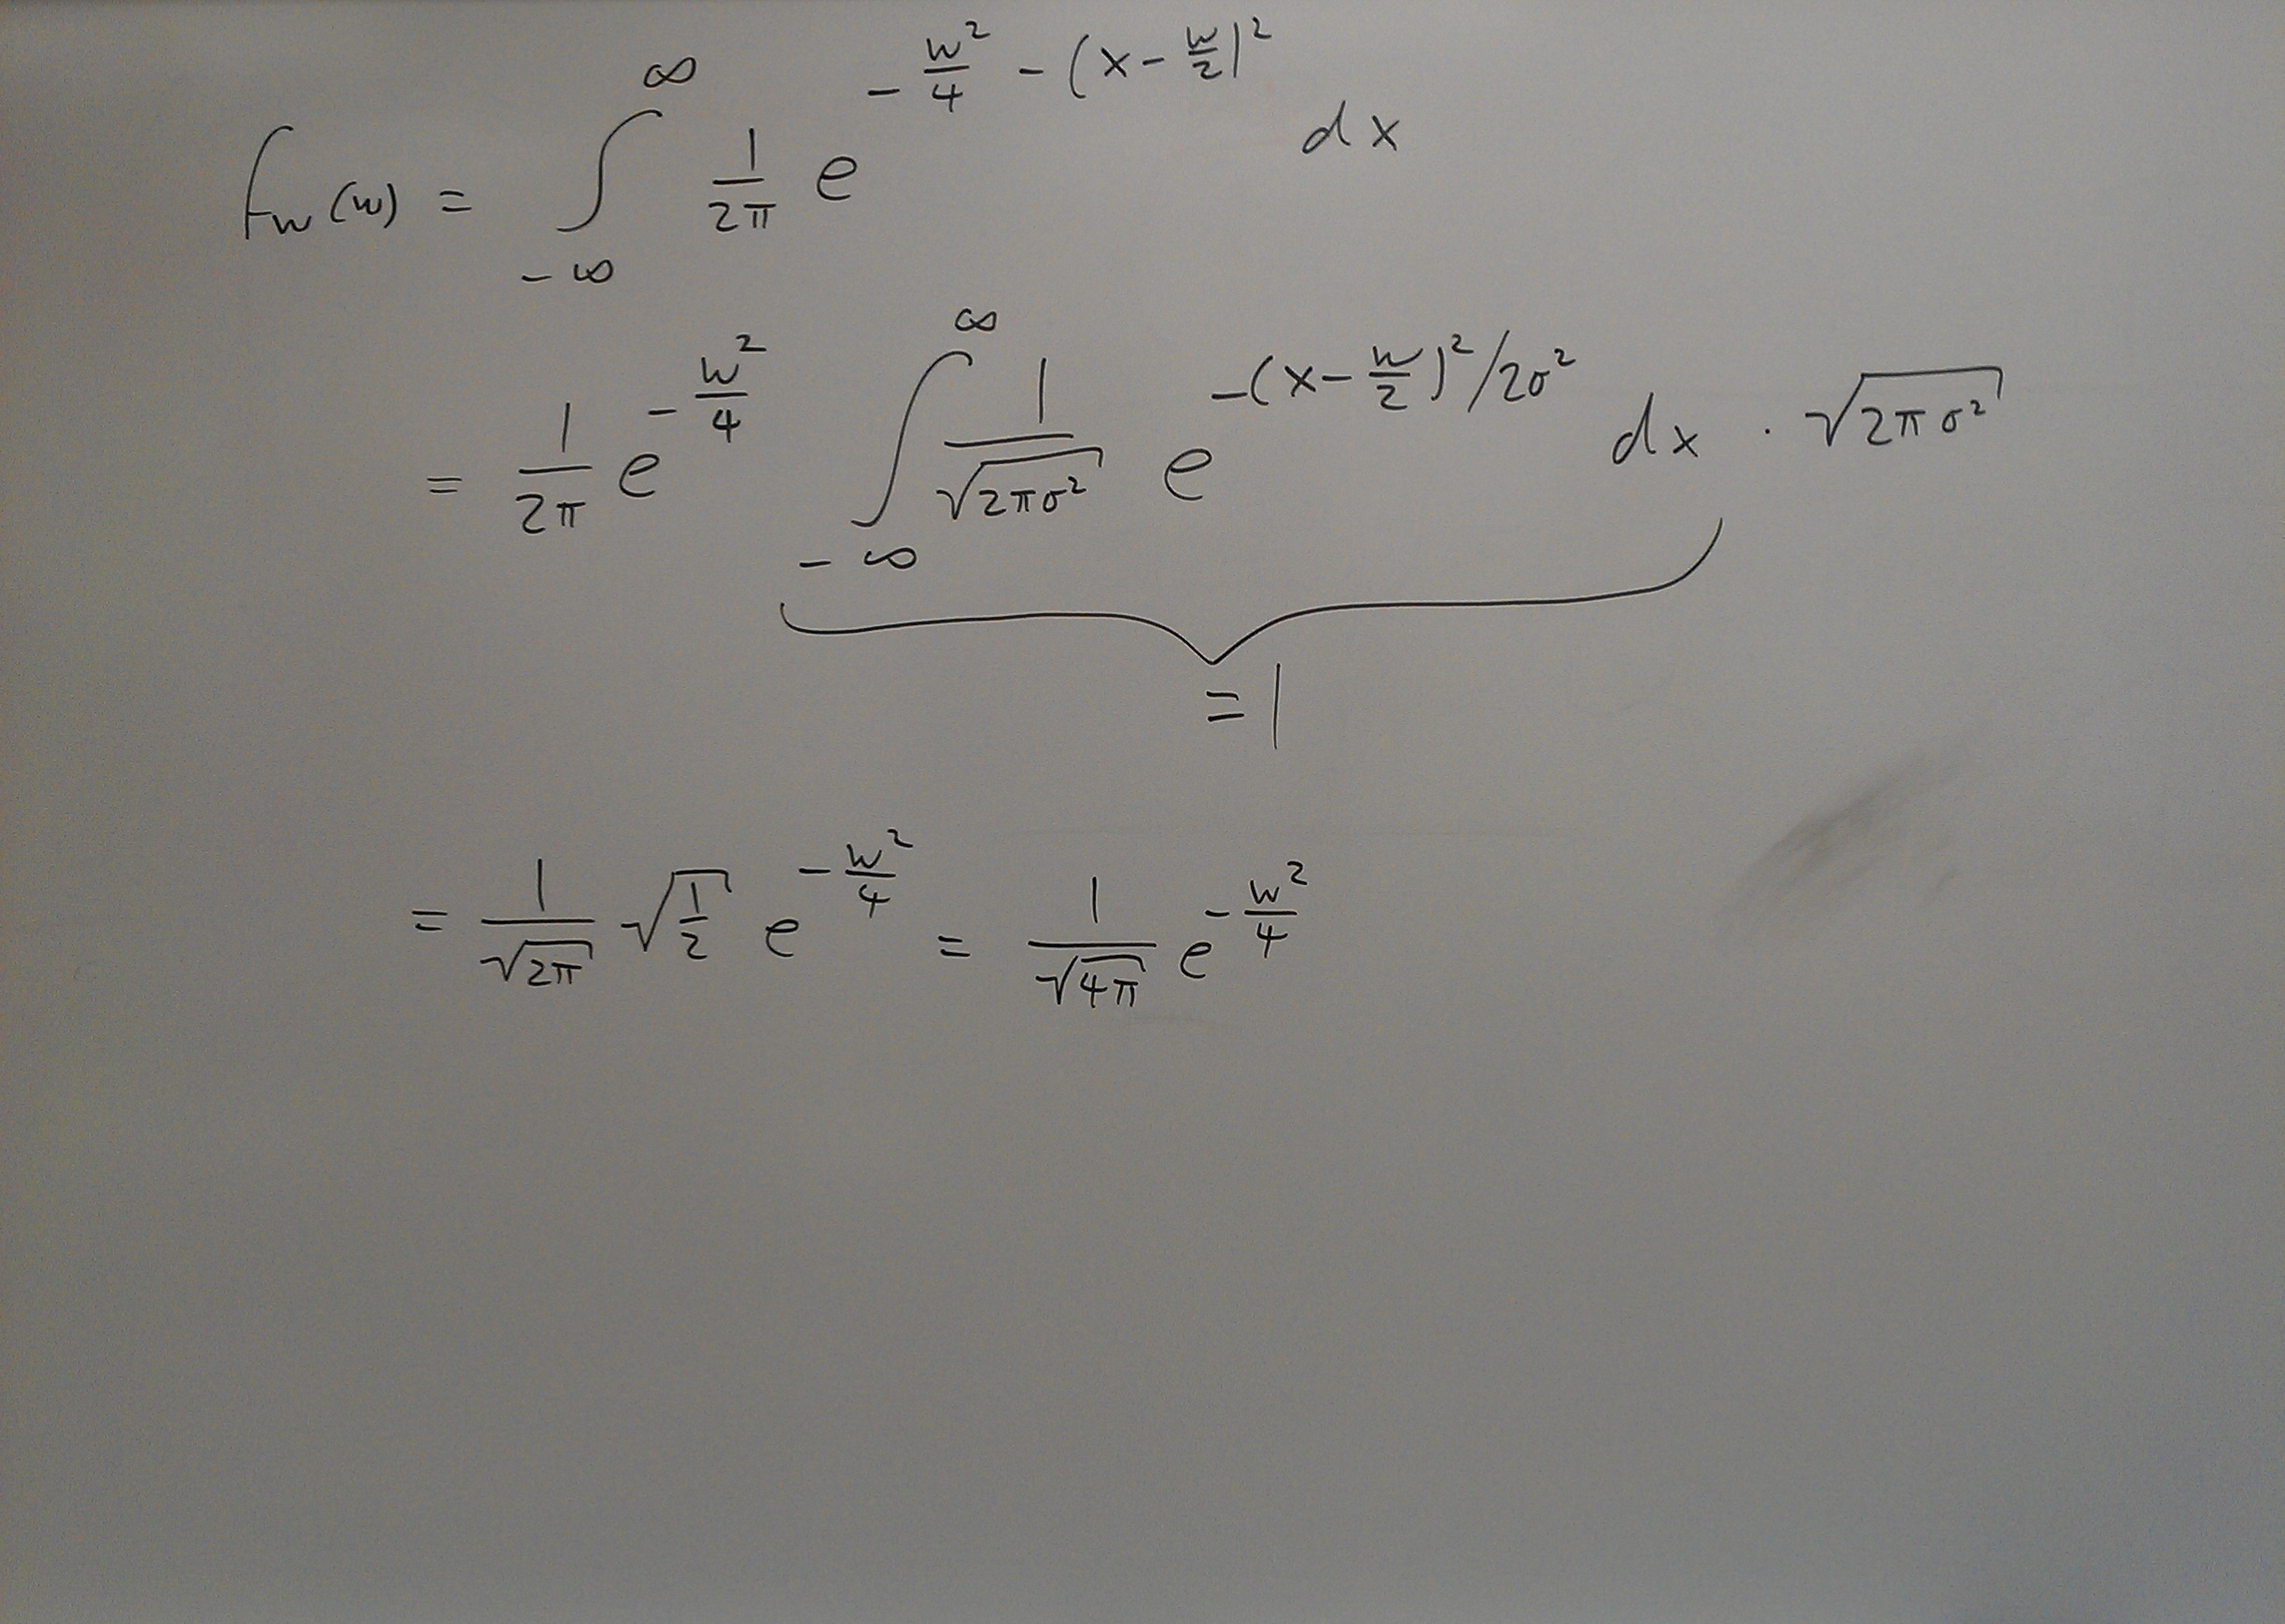 f_W(w) = ∫_{-∞}^{∞} \frac{1}{2π} e^{-\frac{w^2}{4} - (x - \frac{w}{2})^2} dx
= \frac{1}{2π} e^{-\frac{w^2}{4}} ∫_{-∞}^{∞} \frac{1}{\sqrt{2πσ^2}} e^{-(x - \frac{w}{2})^2/2σ^2} dx · \sqrt{2πσ^2}
= 1
= \frac{1}{\sqrt{2π}} \sqrt{\frac{1}{2}} e^{-\frac{w^2}{4}} = \frac{1}{\sqrt{4π}} e^{-\frac{w^2}{4}}